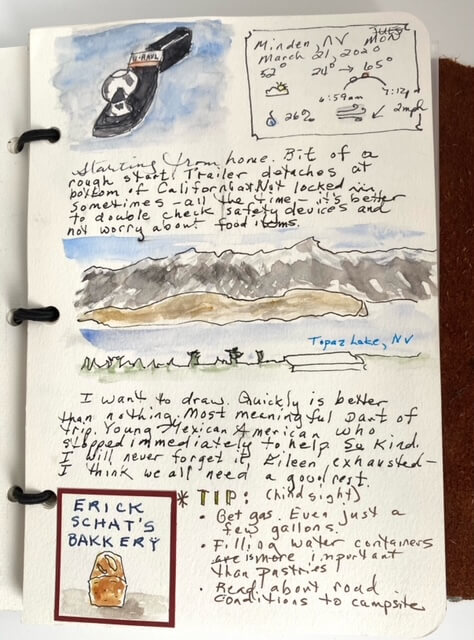 U-HAUL
Minden, NV MON
March 21, 2020
52° 24° → 65°
6:59am 7:12p
26% 2mph
Starting from home. Bit of a
rough start. Trailer detaches at
bottom of California. Not locked in.
sometimes - all the time - it's better
to double check safety devices and
not worry about food items.
Topaz Lake, NV
I want to draw. Quickly is better
than nothing. Most meaningful part of
trip. Young Mexican American who
stopped immediately to help. So kind.
I will never forget it. Eileen exhausted-
I think we all need a good rest.
* TIP: (hindsight)
• Get gas. Even just a
few gallons.
• Filling water containers
are is more important
than pastries
• Read about road
conditions to campsite
ERICK
SCHAT'S
BAKKERY